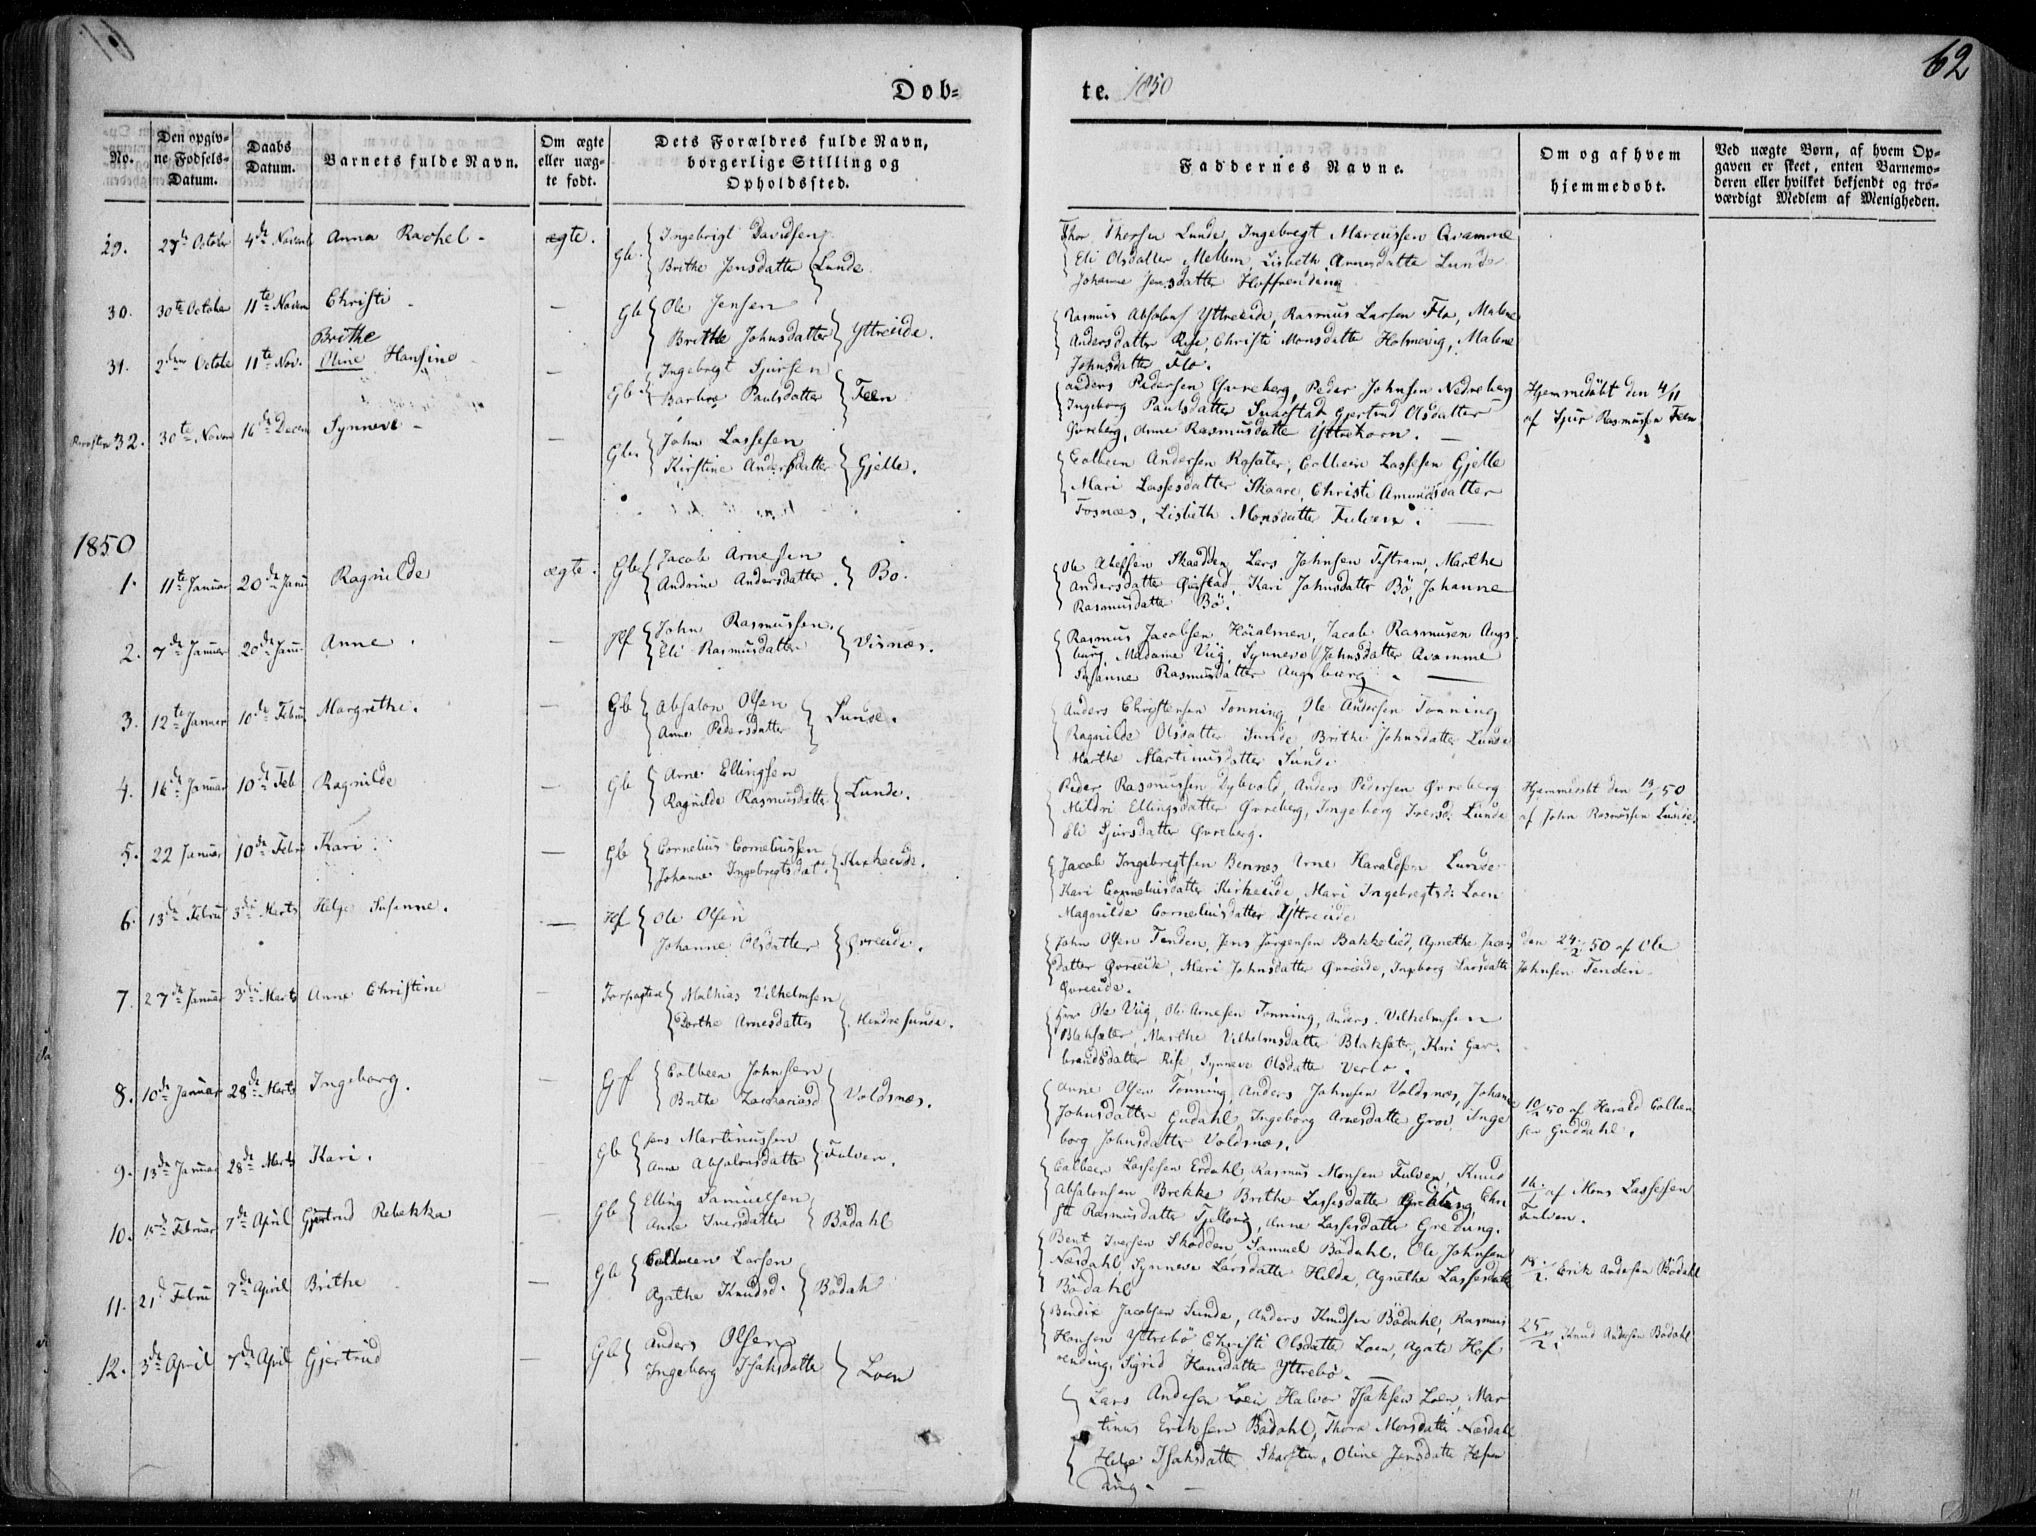 Døb-
te. 1850
62
No.
Den opgiv-
ne Fødsels-
Datum.
Daabs
Datum.
Barnets fulde Navn.
Om ægte
eller uæg-
te født.
Dets Forældres fulde Navn,
borgerlige Stilling og
Opholdssted.
Faddernes Navne.
Om og af hvem
hjemmedøbt.
Ved uægte Børn, af hvem Op-
gaven er skeet, enten Barnemo-
deren eller hvilket bekjendt og tro-
værdigt Medlem af Menigheden.
29. 27de October 4de Novemb Anna Rachel - ægte. Gb. Ingebrigt Davidsen
Brithe Jensdatter Lunde
Thor Thorsen Lunde, Ingebregt Marcussen Qvamme
Eli Olsdatter Mellem, Lisbeth Arnesdatte Lunde
Johanne Jensdatter Hoffrending
30. 30te October 11te Novem Christi - — Gb Ole Jensen
Brithe Johnsdatter Yttreeide.
Rasmus Absalons Yttreeide, Rasmus Larsen Flo, Malene
Andersdatter Rise, Christi Monsdatte Holmevig, Malene
Johnsdatter Flo.
31. 2den Octobe 11te Nov. Brithe
Oline Hansine — Gb Ingebregt Sjursen
Barbro Paulsdatter Feen
Anders Pedersen Øvreberg, Peder Johnsen Nedreberg
Ingeborg Paulsdatter Gjertrud Olsdatter
Øvreberg, Anne Rasmusdatte Yttrehorn. —
Hjemmedøbt den 4/11
af Sjur Rasmussen Feen
32. 30te Novem 16de Decem Synneve - — Gb. John Lassesen
Kirstine Andersdatter Gjelle.
Colbeen Andersen Rosæter, Colbein Lassesen Gjelle
Mari Lassesdatter Skaare, Christi Amundsdatter
Fosnæs, Lisbeth Monsdatter Fulven. —
1850
1. 11te Januar 20de Janu Ragnilde ægte. Gb Jacob Arnesen
Andrine Andersdatter. Bø.
Ole Skaadden, Lars Johnsen Tistram, Marthe
Andersdatte Kari Johnsdatter Bø, Johanne
Rasmusdatte Bø.
2. 7de Januer 20de Janu Anne. — Hf John Rasmussen
Eli Rasmusdatter Visnæs.
Rasmus Jacobsen Høialmen, Jacob Rasmusen Augs-
burg, Madame Viig, Synneve Johnsdatter Qvamme
Susanne Rasmusdatter Augsburg. —
3. 12te Januer 10de Februa Margrethe. — Gb Absalon Olsen
Anne Pedersdatter Sunde.
Anders Christensen Tonning, Ole Andersen Tonning
Ragnilde Olsdatter Sunde, Brithe Johnsdatter Lunde
Marthe Martinusdatter Sunde
4. 16de Januar 10de Feb Ragnilde — Gb Arne Ellingsen
Ragnilde Rasmusdatter Lunde.
Peder Rasmussen Dybvold, Anders Pedersen Øvreberg
Mildri Ellingsdatter Øvreberg, Ingeborg Iversd: Lunde
Eli Sjursdatter Øvreberg.
Hjemmedøbt den 19/1 50
af John Rasmussen Lunde.
5. 22 Januar 10de Febru Kari — Gb Cornelius Corneliussen
Johanne Ingebregtsdat. Kirkeeide.
Jacob Ingebregtsen Bennes, Arne Haraldsen Lunde
Kari Corneliusdatter Kirkeeide, Mari Ingebregtsd: Loen
Magnilde Corneliusdatter Yttreeide
6. 13de Februa 3die Marts Helge Susanne. — Hf Ole Olsen
Johanne Olsdatter Øvreeide.
John Olsen Tenden, Jens Jørgensen Bakkelied, Agnethe Jacobs
datter Øvreeide, Mari Johnsdatter Øvreeide, Ingborg Larsdatte
Øvreeide.
den 24/2 50 af Ole
Johnsen Tenden.
7. 27de Januar 3die Marts Anne Christine — Forpagter Mathias Vilhelmsen
Dorthe Arnesdatter Hindresunde.
Herr Ole Viig, Ole Arnesen Tonning, Anders Vilhelmsen
Blaksæter, Marthe Vilhelmsdatter Blaksæter, Kari Gur-
brandsdatter Rise, Synneve Olsdatte Verlo.
8. 10de Januar 28de Marts Ingeborg. — Gf Colbeen Johnsen
Brithe Zachariasd Voldsnæs.
Anne Olsen Tonning, Anders Johnsen Voldsnæs, Johanne
Johnsdatter Gudahl, Ingeborg Arnesdatte Grov, Inge
borg Johnsdatter Voldsnæs.
10/1 50 af Harald Colben
sen Guddahl.
9. 13de Januar 28de Marts Kari. — Gb Jens Martinussen
Anne Absalonsdatter Fulven.
Colbeen Lassesen Erdahl, Rasmus Monsen Fulven, Knud
Absalonsen Brekke Brithe Lassesdatter Greding, Chri
sti Rasmusdatter Anne Lassesdatter Greding.
16/1 af Mons Lassesen
Fulven.
10. 15de Februar 7de April Gjertrud Rebekka — Gb Elling Samuelsen
Anne Iversdatter Bødahl
Bent Iversen Skodden, Samuel Bødahl, Ole Johnsen
Næsdahl, Synneve Larsdatter Hilde, Agnethe Lassesdatte
Bødahl
18/2 Erik Andersen Bødahl
11. 21d Febru 7de April Brithe — Gb Colbeen Larsen
Agathe Knudsd. Bødahl
Bendix Jacobsen Sunde, Anders Knudsen Bødahl, Rasmus
Hansen Yttrebø, Christi Olsdatte Loen, Agate Hof
rending, Sigrid Hansdatte Yttrebø.
25/2. Knud Andersen Bødahl
12. 3de April 7de April Gjertrud — Gb Anders Olsen
Ingeborg Isaksdatte Loen
Lars Andersen Loen, Halvor Isaksen Loen, Mar
tinus Eriksen Bødahl, Thora Monsdatte Næsdahl
Helge Isaksdatte Skarsten, Oline Jensdatte Hofren
ding. —